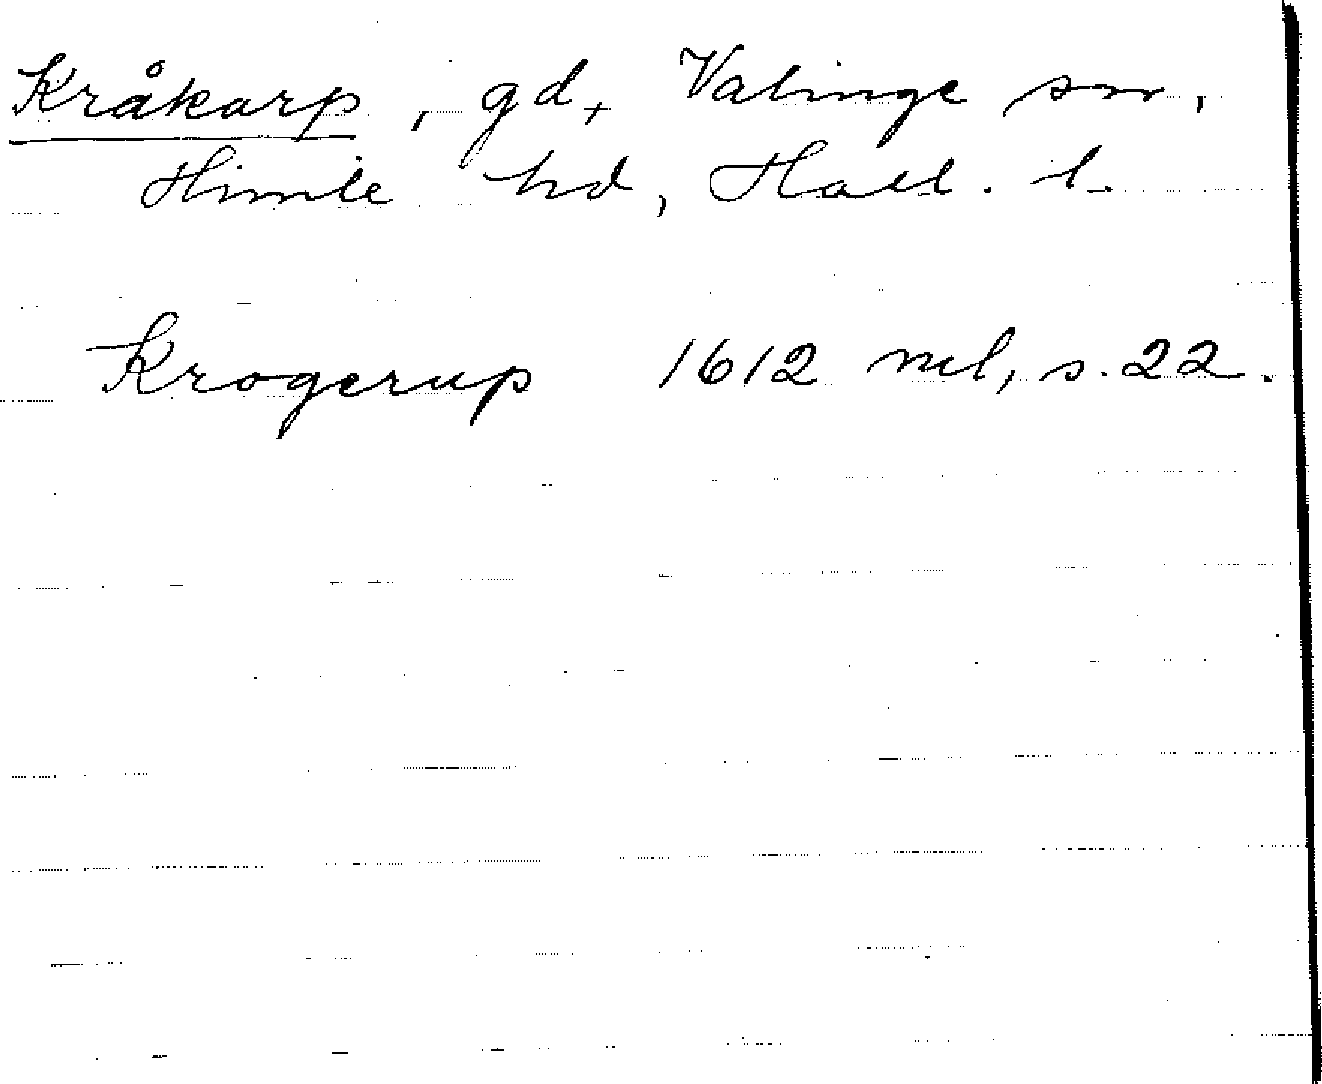 Kråkarp, gd, Valinge sn,
Himle hd, Hall. l.
Krogerup 1612 ml, s. 22.